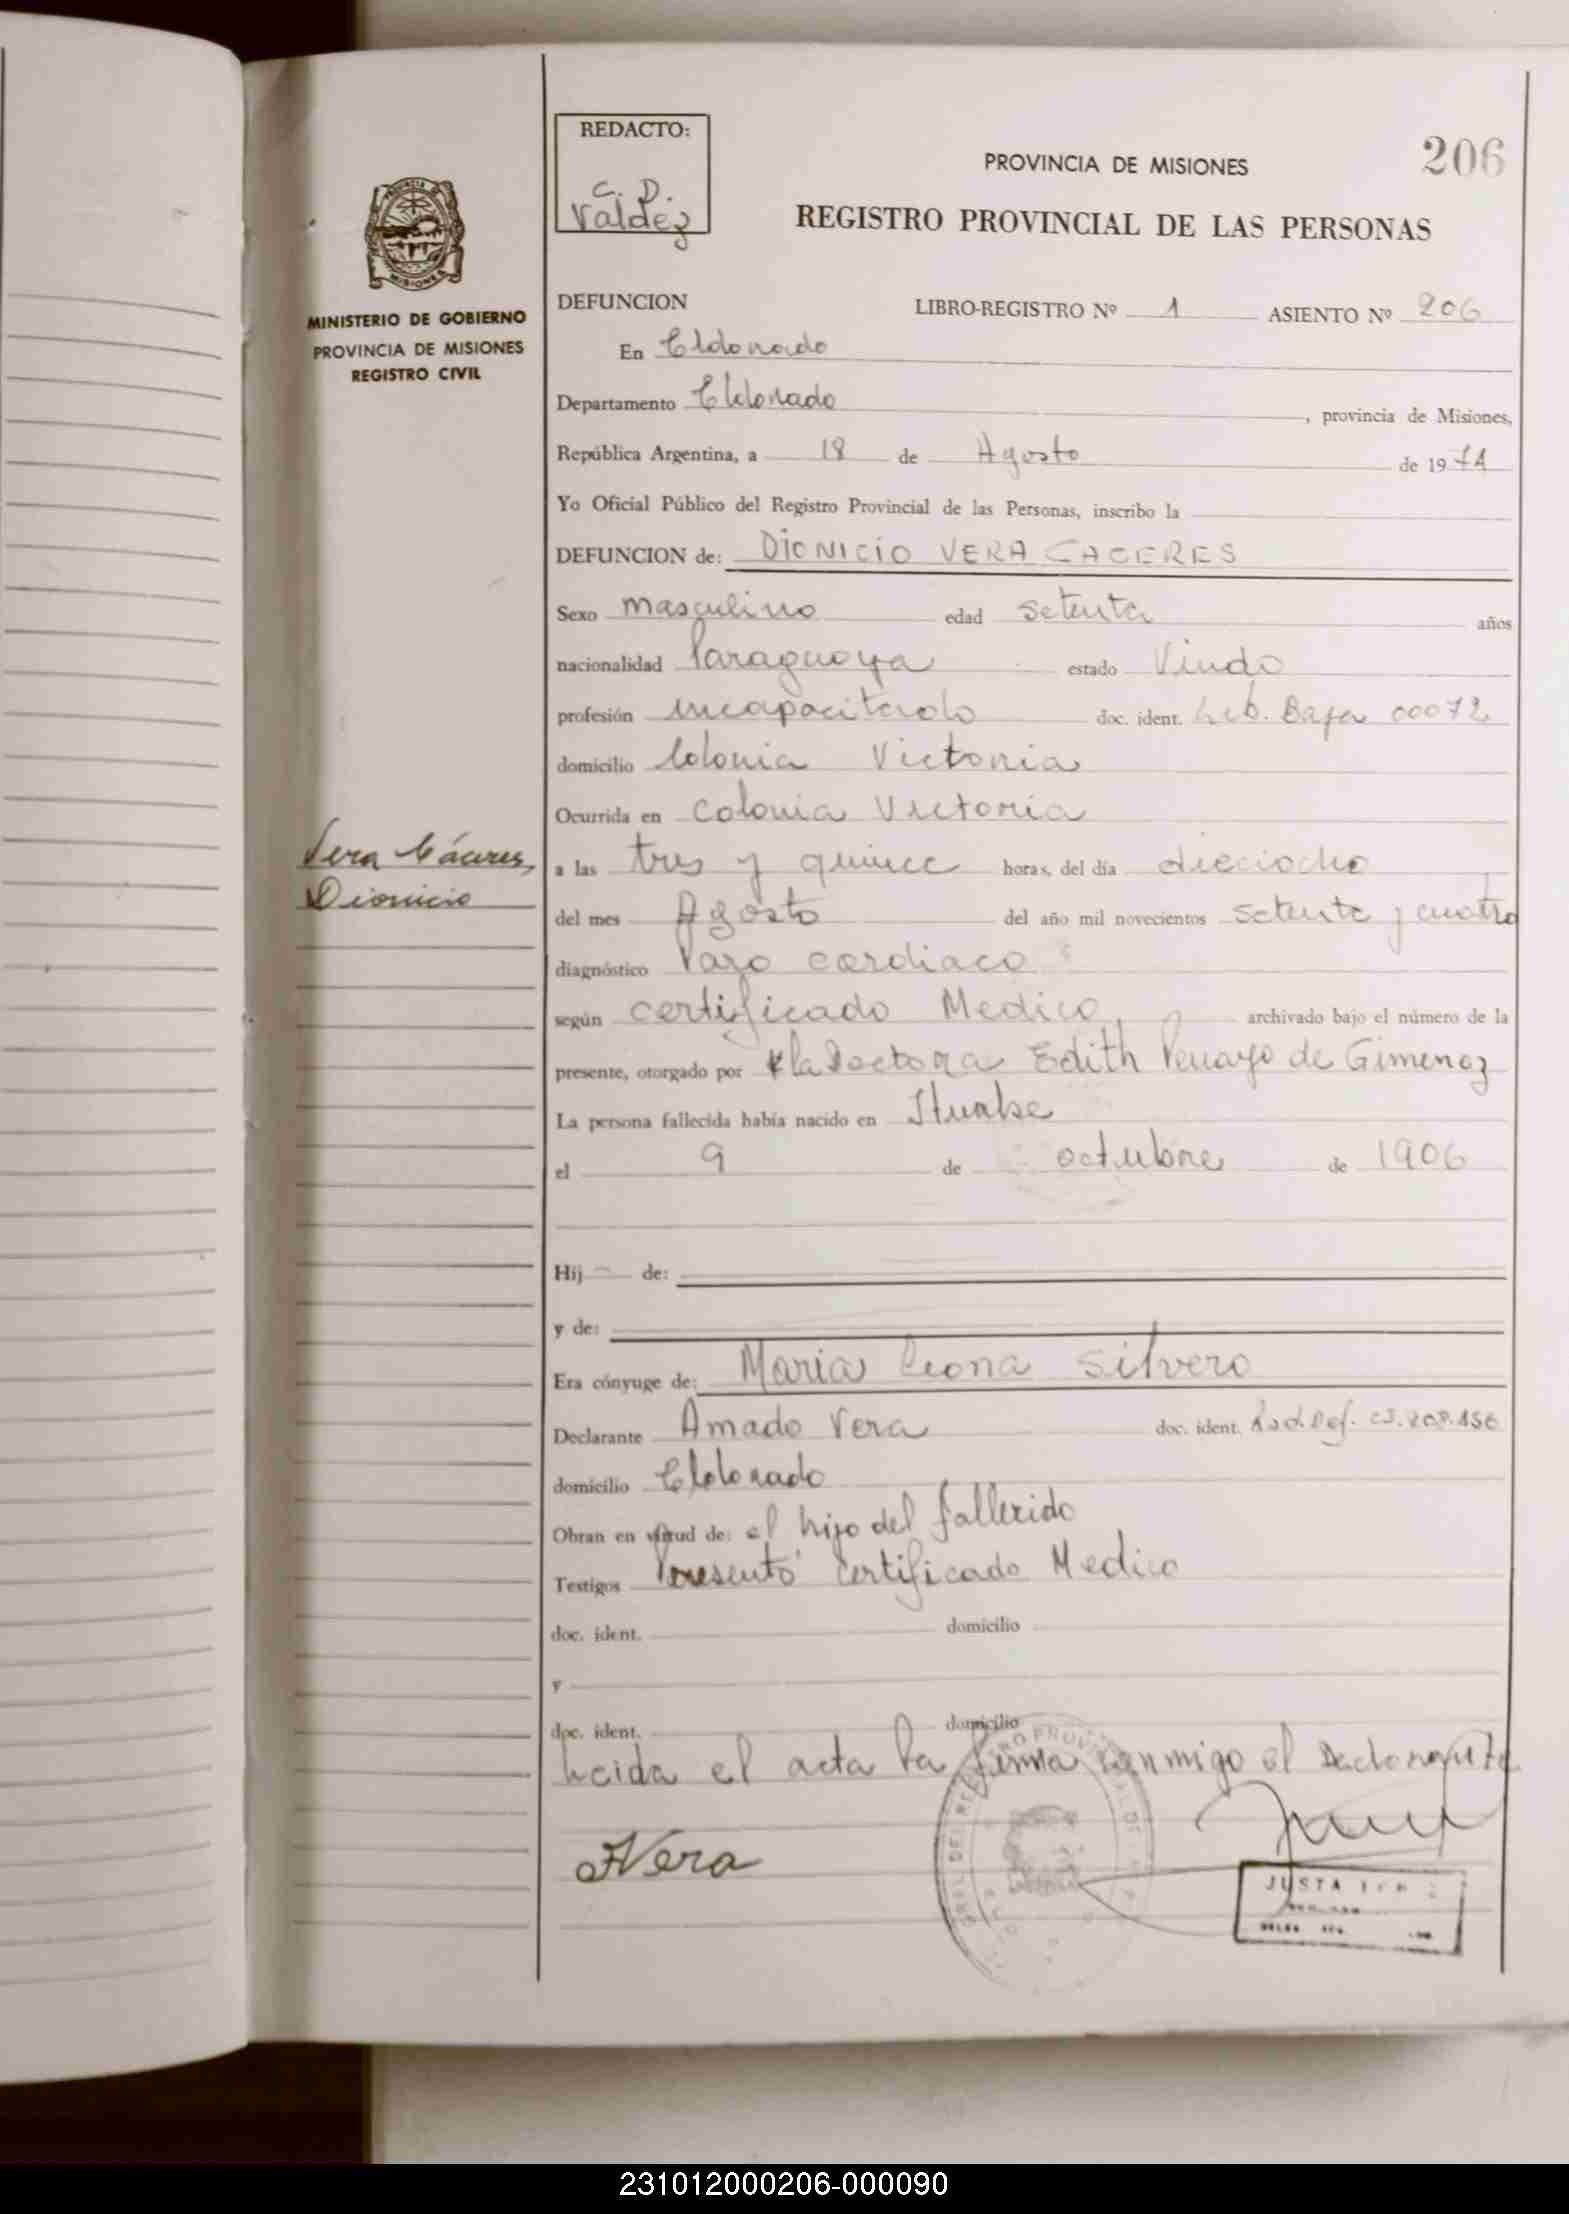 REDACTO:
C. D.
Valdéz
PROVINCIA DE MISIONES
206
REGISTRO PROVINCIAL DE LAS PERSONAS
MINISTERIO DE GOBIERNO
PROVINCIA DE MISIONES
REGISTRO CIVIL
DEFUNCION LIBRO-REGISTRO Nº 1 ASIENTO Nº 206
En Eldorado
Departamento Eldorado, provincia de Misiones,
República Argentina, a 18 de Agosto de 1974
Yo Oficial Público del Registro Provincial de las Personas, inscribo la
DEFUNCION de: DIONICIO VERA CACERES
Sexo masculino edad setenta años
nacionalidad Paraguaya estado Viudo
profesión incapacitado doc. ident. Lib. Baja 00072
domicilio Colonia Victoria
Ocurrida en Colonia Victoria
Vera Cáceres,
Dionicio
a las tres y quince horas, del día dieciocho
del mes Agosto del año mil novecientos setenta y cuatro
diagnóstico Paro cardiaco
según certificado Medico, archivado bajo el número de la
presente, otorgado por la Doctora Edith de Gimenez
La persona fallecida había nacido en
el 9 de octubre de 1906
Hij de:
y de:
Era cónyuge de: Maria Leona Silvero
Declarante Amado Vera doc. ident.
domicilio Eldorado
Obran en virtud de: el hijo del fallecido
Testigos Presentó certificado Medico
doc. ident. domicilio
y
doc. ident. domicilio
Leida el acta la firma conmigo el Declarante
AVera
JUSTA
231012000206-000090